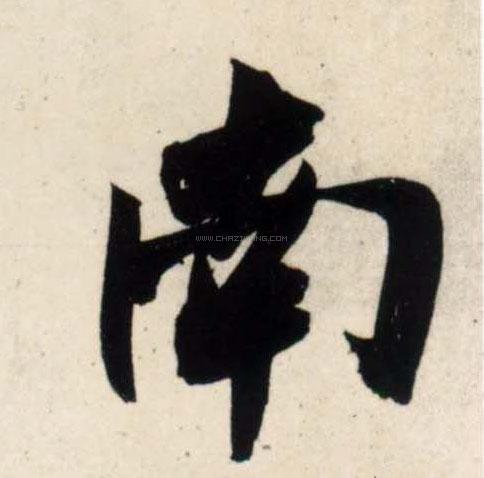 南
WWW.CHAZIDIAN.COM